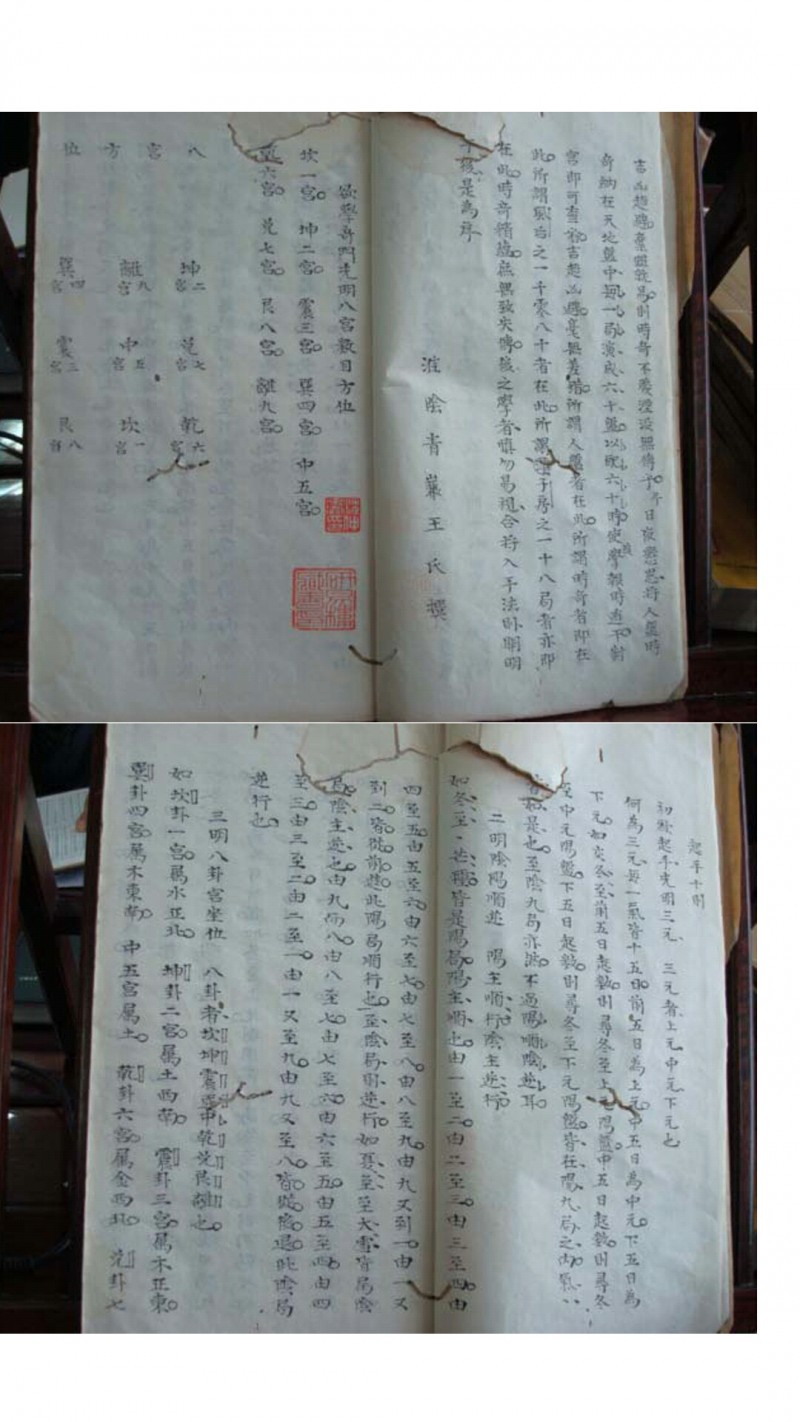 吉凶趨避棄難就易則時奇不處湮沒無傳予日夜懸思將人盤時
奇納在天地盤中每一局演成六十盤以致六十時使學報時
宮即可查 吉趨凶避毫無差錯所謂人盤者在此所謂時奇者即在
此所謂 之一千零八十者在此所謂 子房之一十八局者亦即
在此時奇精蘊庶無致失傳後之學者慎勿易視合將入手法卧開明
於後是為序
淮陰青巖王氏撰
欲學奇門先明八宮數目方位
坎一宮 坤二宮 震三宮 巽四宮 中五宮
乾六宮 兌七宮 艮八宮 離九宮
八宮方位
坤二宮 兌七宮 乾六宮
離九宮 中五宮 坎一宮
巽四宮 震三宮 艮八宮
起手十則
初起手先明三元 三元者上元中元下元也
何為三元每一氣皆十五日前五日為上元中五日為中元下五日為
下元如交冬至前五日起數則尋冬至上元陽盤中五日起數則尋冬
至中元陽盤下五日起數則尋冬至下元陽盤皆在陽九局之內
是也至陰九局亦然不過陽順陰逆耳
二明陰陽順逆 陽主順行陰主逆行
如冬至芒種皆是陽局陽主順也由一至二由二至三由三至四由
四至五由五至六由六至七由七至八由八至九由九又到一由一又
到二皆從前進此陽局順行也至陰局則逆行如夏至至大雪皆屬陰
局陰主逆也由九而八由八至七由七至六由六至五由五至四由四
至三由三至二由二至一由一又至九由九又至八皆從後退此陰局
逆行也
三明八卦宮坐位 八卦者坎坤震巽中乾兌艮離也
如坎卦一宮屬水正北 坤卦二宮屬土西南 震卦三宮屬木正東
巽卦四宮屬木東南 中五宮屬土 乾卦六宮屬金西北 兌卦七